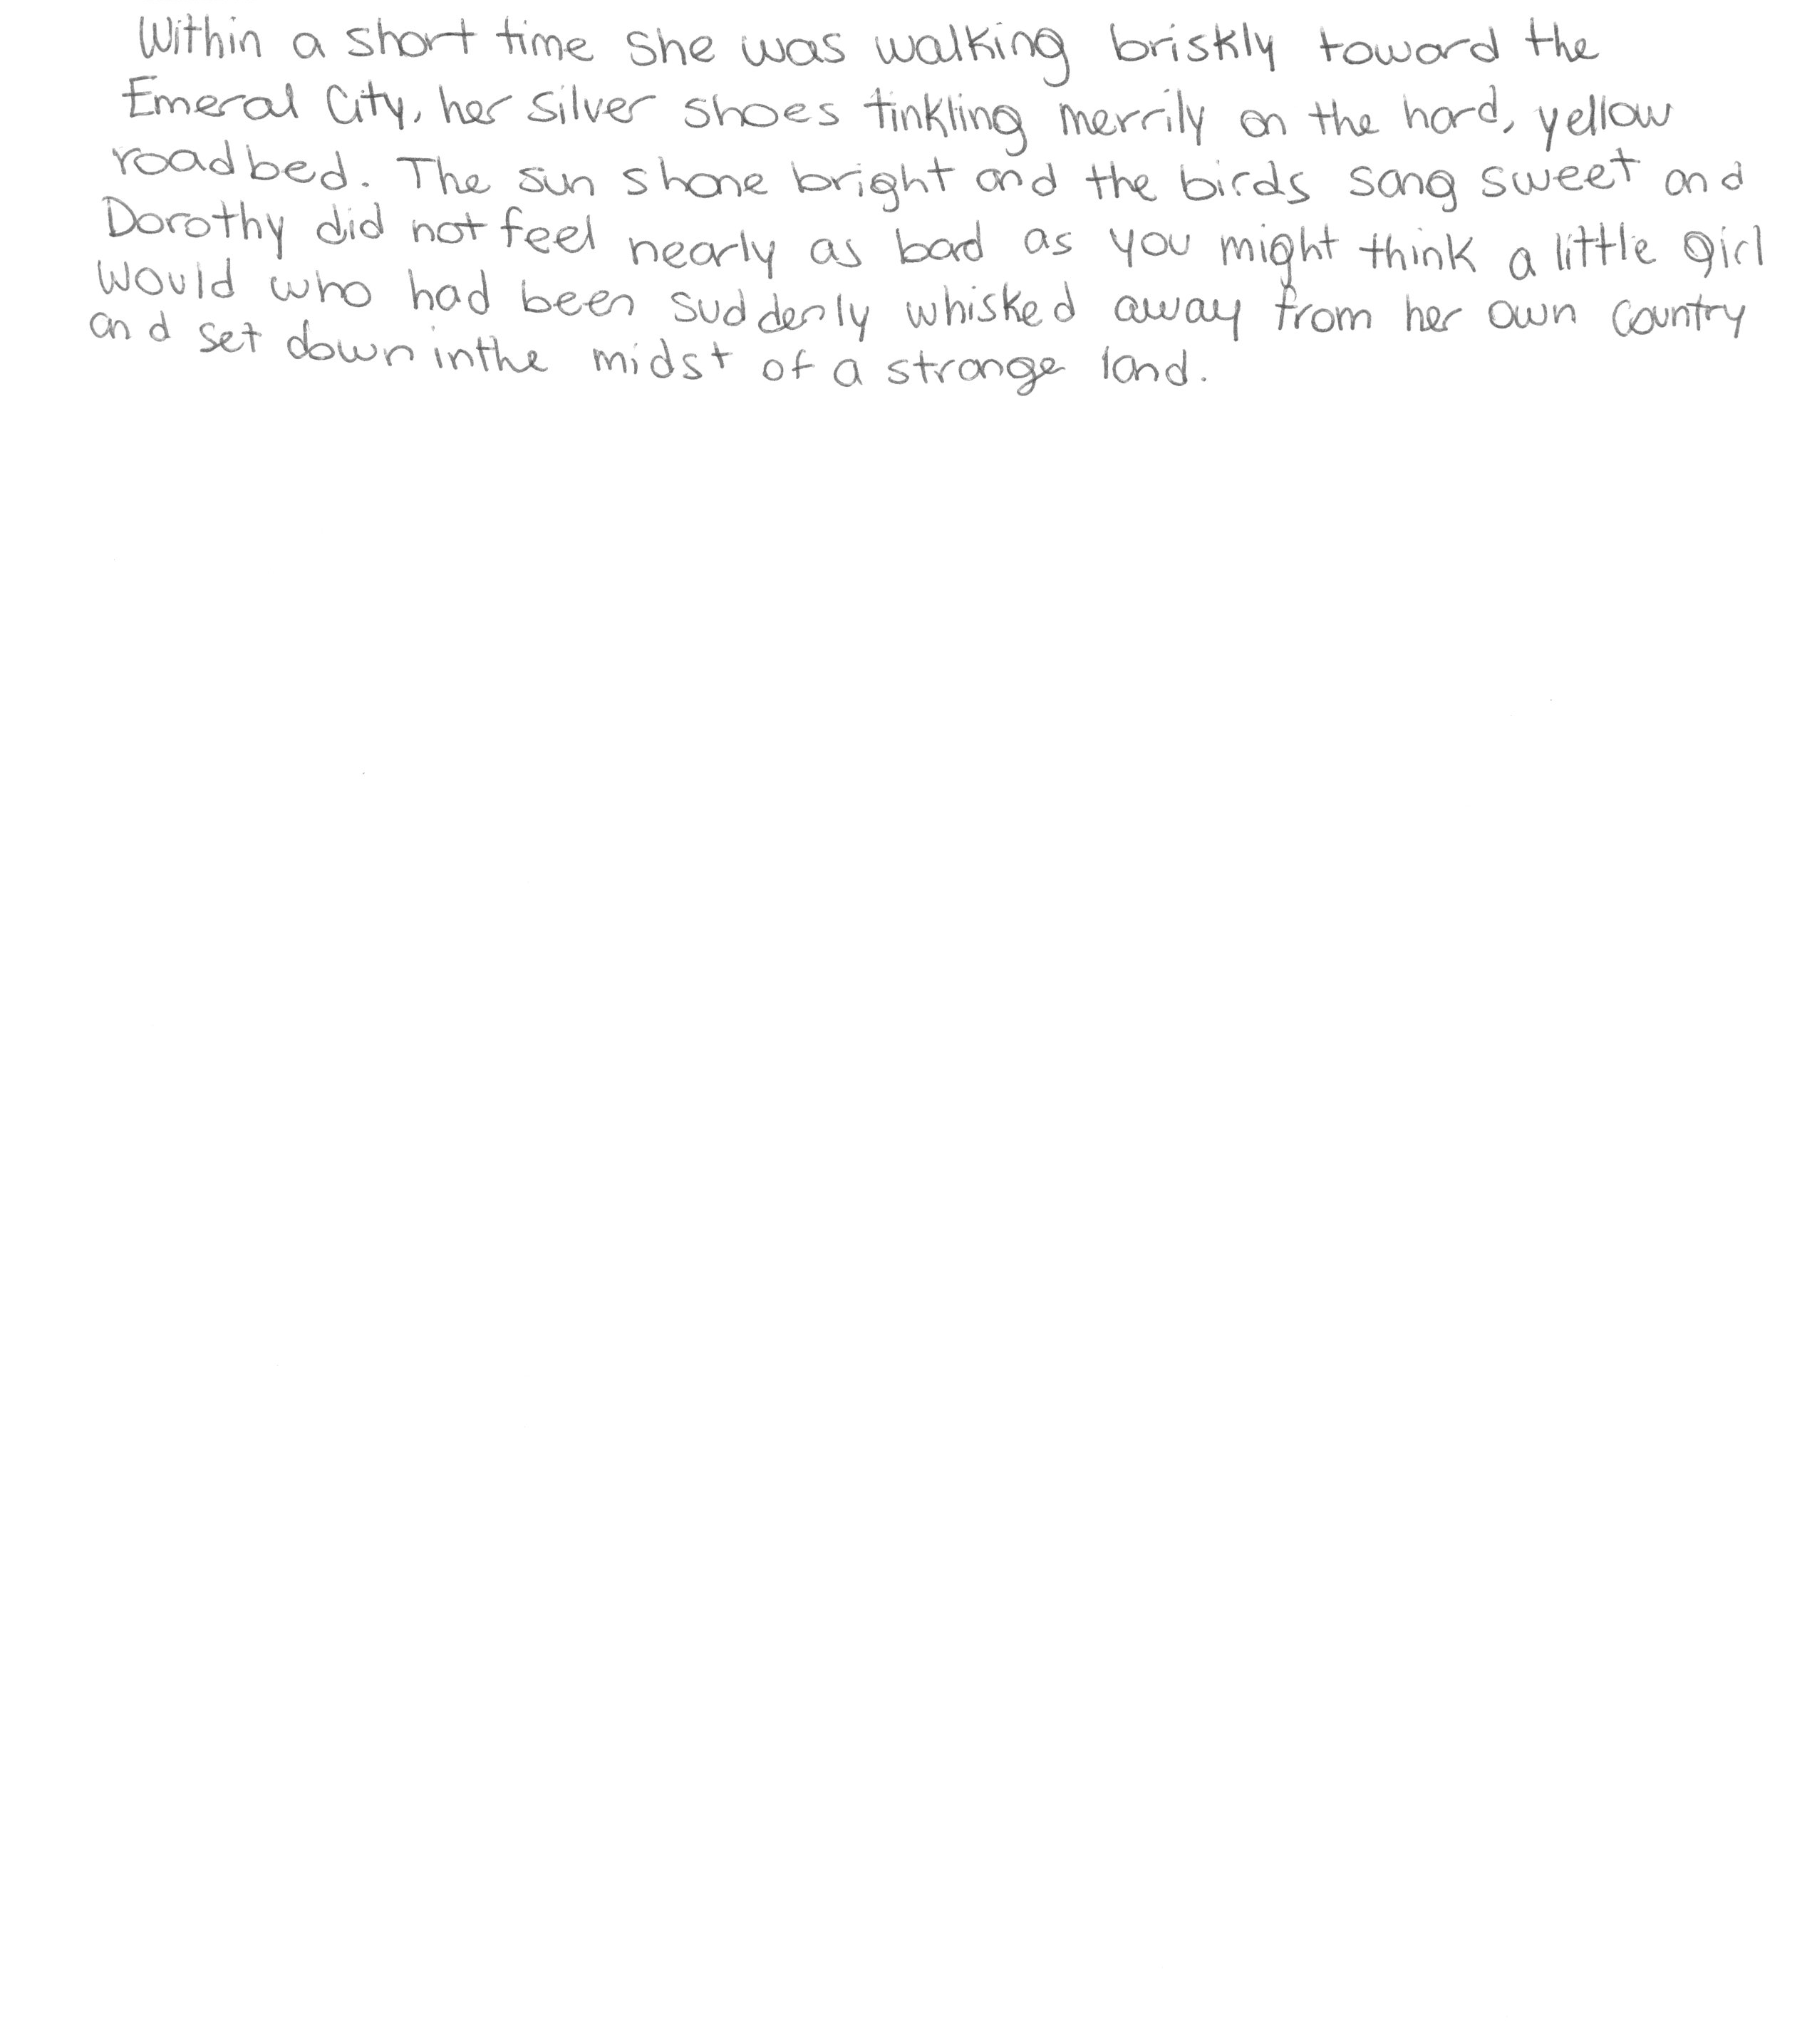 Within a short time she was walking briskly toward the
Emeral City, her silver shoes tinkling merrily on the hard, yellow
roadbed. The sun shone bright and the birds sang sweet and
Dorothy did not feel nearly as bad as you might think a little girl
would who had been suddenly whisked away from her own country
and set down inthe midst of a strange land.